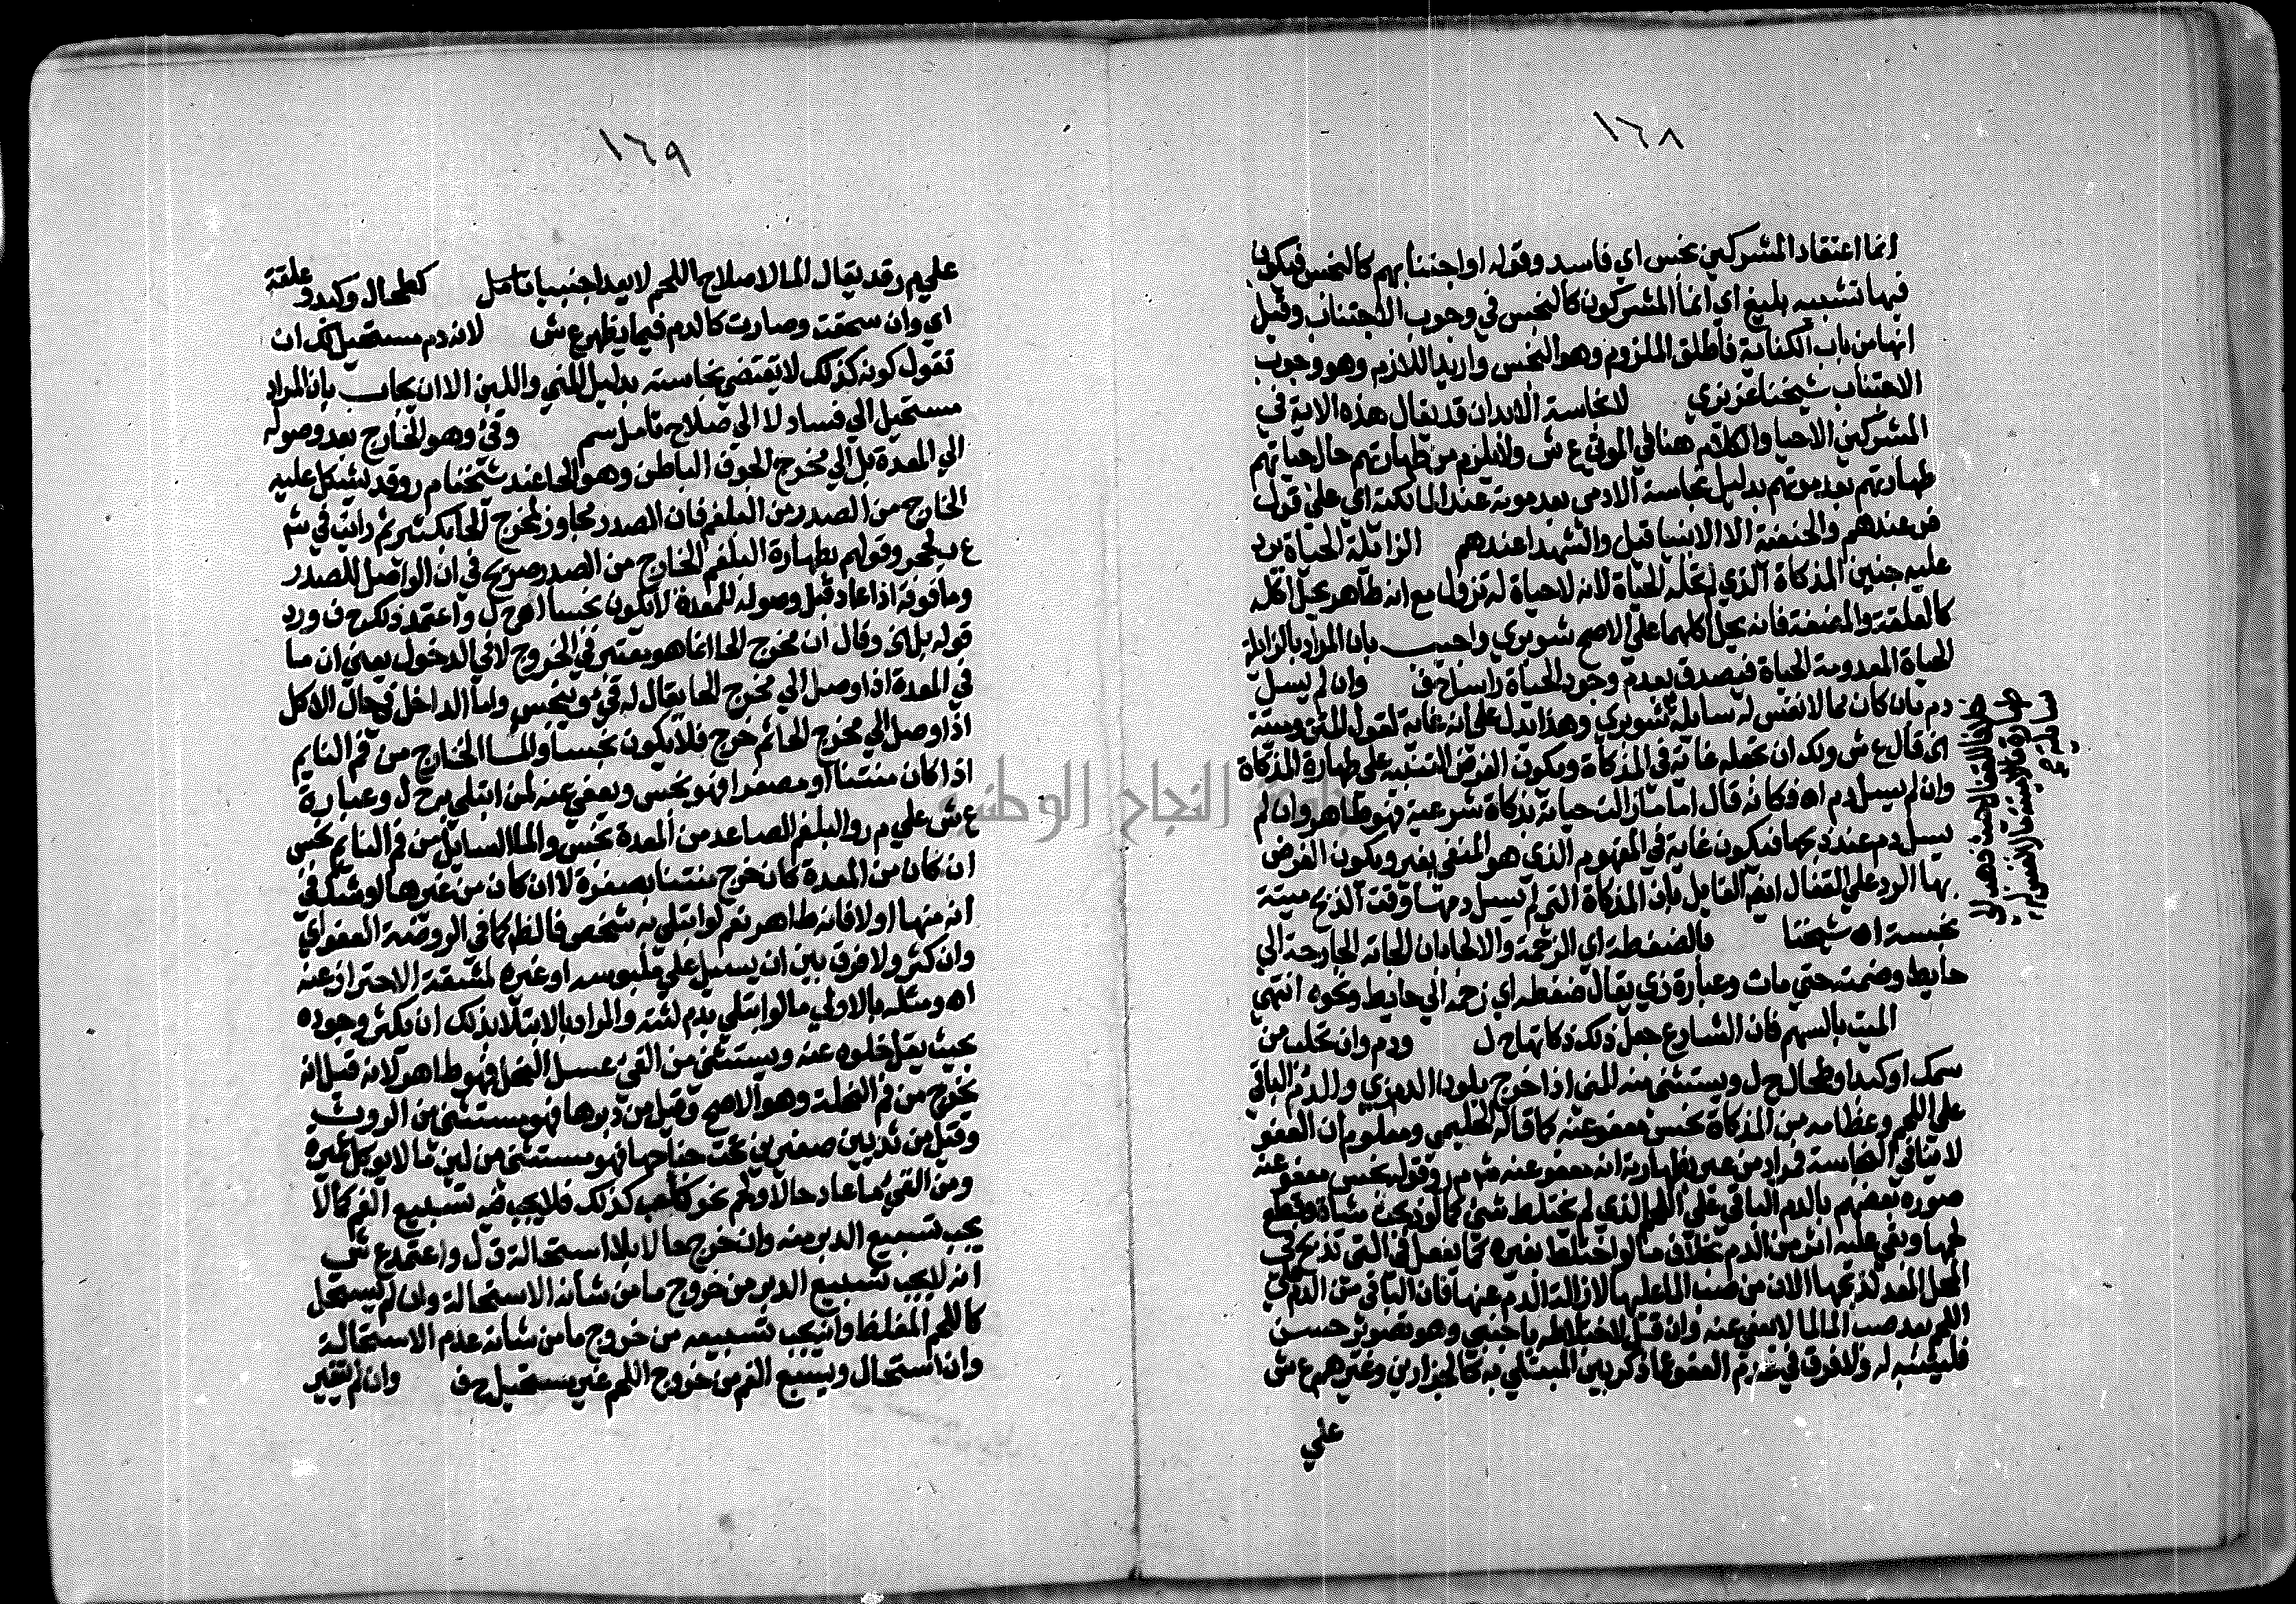 ١٦٨
انما اعتقاد المشركين نجس اي فاسد وقوله او اجتنابهم كالنجس فيكون
فيها تشبيه بليغ اي انما المشركون كالنجس في وجوب الاجتناب وقيل
انها من باب الكناية فاطلق الملزوم وهو النجس واريد اللازم وهو وجوب
الاجتناب شيخنا عزيزي لانجاسة الابدان قد يقال هذه الاية في
المشركين الاحيا والكلام هنا في الموتى ع ش ولا يلزم من طهارتهم حال حياتهم
طهارتهم بعد موتهم بدليل نجاسة الادمي بعد موته عند المالكية اي على قول
عندهم والحنفية الا الانبيا قيل والشهدا عندهم الزائلة الحياة يرد
عليه جنين المذكاة الذي لم تحله الحياة لانه لا حياة له تزول مع انه طاهر يحل اكله
كالعلقة والمضغة فانه يحل اكلهما على الاصح شوبري واجيب بان المراد بالزائلة
الحياة المعدومة الحياة فيصدق بعدم وجود الحياة راسا ح ف وان لم يسل
دم بان كان مما لا نفس له سايلة شوبري وهذا يدل على انه غاية لقول المتن وميتة
قال ع ش ولك ان تجعله غاية في المذكاة ويكون الغرض التنبيه على طهارة المذكاة
وان لم يسل دم اه فكانه قال اما ما زالت حياته بذكاة شرعية فهو طاهر وان لم
يسل دم عند ذبحها فيكون غاية في المفهوم الذي هو المنفي بغير ويكون الغرض
بها الرد على القفال ايضا القايل بان المذكاة التي لم يسل دمها وقت الذبح ميتة
نجسة اه شيخنا بالضغطة اي الزحمة والالجا بان الجاته الجارحة الى
حايط وضمته حتى مات وعبارة زي يقال ضغطه اي زحمه الى حايط ونحوه انتهى
الميت بالسهم فان الشارع جعل ذلك ذكاتها ح ل ودم وان تحلب من
سمك او كبد او طحال ح ل ويستثنى منه المني اذا خرج بلون الدم زي والدم الباقي
على اللحم وعظامه من المذكاة نجس معفو عنه كما قاله الحليمي ومعلوم ان العفو
لا ينافي النجاسة فمراد من عبر بطهارته انه معفو عنه ش م ر وقوله نجس معفو عنه
صوره بعضهم بالدم الباقي على اللحم الذي لم يختلط بشئ كما لو ذبحت شاة وقطع
لحمها وبقي عليه اثر من الدم بخلاف ما لو اختلط بغيره كما يفعل في التي تذبح في
المحل المعد لذبحها الان من صب الما عليها لازالة الدم عنها فان الباقي من الدم على
اللحم بعد صب الما لا يعفى عنه وان قل لاختلاطه باجنبي وهو تصوير حسن
فليتنبه له ولا فرق في عدم العفو عما ذكر بين المبتلي به كالجزارين وغيرهم ع ش
على
١٦٩
على م ر وقد يقال الما لاصلاح اللحم لا يعد اجنبيا تامل كطحال وكبد وعلقة
اي وان سحقت وصارت كالدم فيما يظهر ع ش لانه دم مستحيل لك ان
تقول كونه كذلك لا يقتضي نجاسته بدليل المني واللبن الا ان يجاب بان المراد
مستحيل الى فساد لا الى صلاح تامل سم وقئ وهو الخارج بعد وصوله
الى المعدة بل الى مخرج الحرف الباطن وهو الحا عند شيخنا م ر وقد يشكل عليه
الخارج من الصدر من البلغم فان الصدر مجاوز لمخرج الحا بكثير ثم رايت في ش
ع ب لحجر وقولهم بطهارة البلغم الخارج من الصدر صريح في ان الواصل للصدر
وما فوقه اذا عاد قبل وصوله للمعدة لا يكون نجسا اه ح ل واعتمد ذلك ح ف ورد
قوله بل الخ وقال ان مخرج الحا انما هو يعتبر في الخروج لا في الدخول يعني ان ما
في المعدة اذا وصل الى مخرج الحا يقال له قئ وينجس واما الداخل في حال الاكل
اذا وصل الى مخرج الحا ثم خرج فلا يكون نجسا والما الخارج من فم النايم
اذا كان منتنا او مصفرا فهو نجس ويعفى عنه لمن ابتلي به ح ل وعبارة
ع ش على م ر والبلغم الصاعد من المعدة نجس والما السايل من فم النايم نجس
ان كان من المعدة كان خرج منتنا بصفرة لا ان كان من غيرها او شك في
انه منها او لا فانه طاهر نعم لو ابتلي به شخص فالظ كما في الروضة العفو اي
وان كثر ولا فرق بين ان يسيل على ملبوسه او غيره لمشقة الاحتراز عنه
اه ومثله بالاولى ما لو ابتلي بدم لثته والمراد بالابتلا بذلك ان يكثر وجوده
بحيث يقل خلوه عنه ويستثنى من القئ عسل النحل فهو طاهر لانه قيل انه
يخرج من فم النحلة وهو الاصح وقيل من دبرها فهو مستثنى من الروث
وقيل من ثديين صغيرين تحت جناحها فهو مستثنى من لبن ما لا يوكل لحمه
ومن القئ ما عاد حالا ولحم نحو كلب كذلك فلا يجب فيه تسبيع الفم كما لا
يجب تسبيع الدبر منه وان خرج حالا بلا استحالة ق ل واعتمد ع ش
انه لا يجب تسبيع الدبر من خروج ما من شانه الاستحالة وان لم يستحل
كاللحم المغلظ وانه يجب تسبيعه من خروج ما من شانه عدم الاستحالة
وان استحال ويسبع الفم من خروج اللحم غير مستحيل ح ف وان لم يتغير